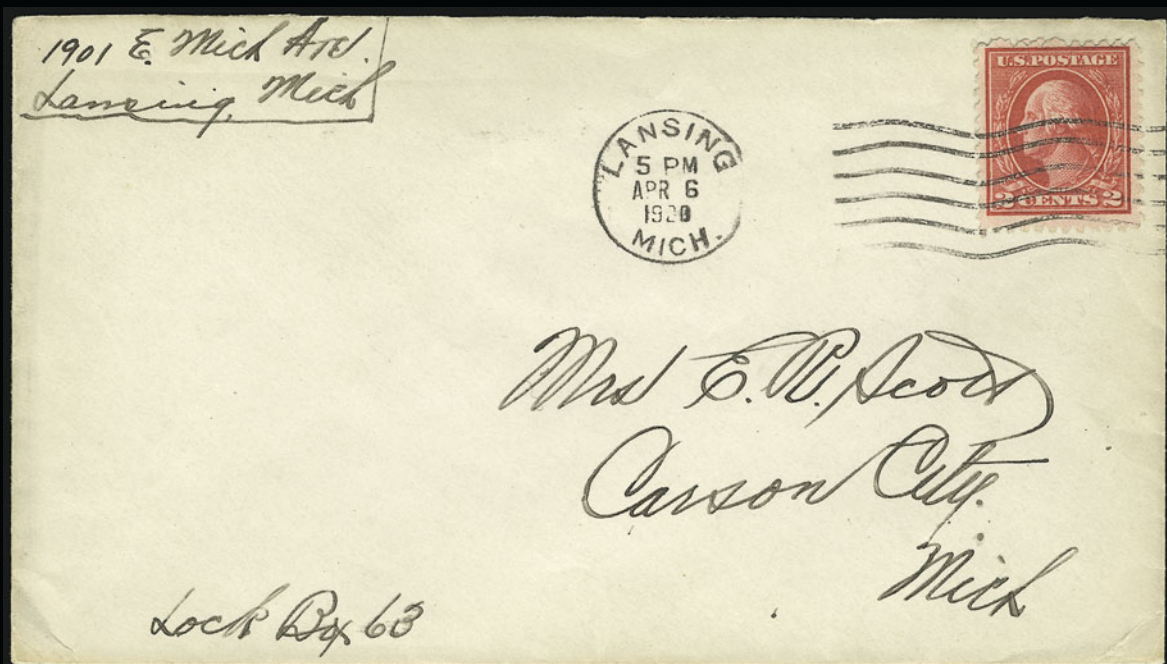 1901 E. Mich Ave.
Lansing, Mich
LANSING
5 PM
APR 6
1920
MICH.
U.S. POSTAGE
2 CENTS 2
Mrs E. R. Scott
Carson City.
Mich
Lock Box 63